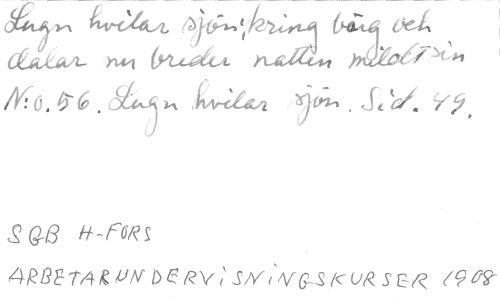 Lugn hvilar sjön; kring bärg och
dalar nu breder natten mildt sin
N:o. 56. Lugn hvilar sjön. Sid. 49.
SGB H-FORS
ARBETARUNDERVISNINGSKURSER 1908